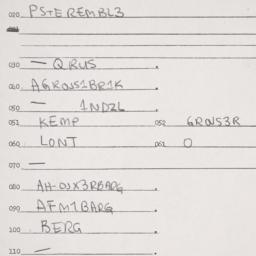 020 PSTEREMBL3
030 — QRUS
040 AGROUS1BR1K
050 — 1NDZL
051 KEMP 052 GROUS3R
060 LONT 061 O
070 —
080
090 AFM1BARG
100 BERG
110 —